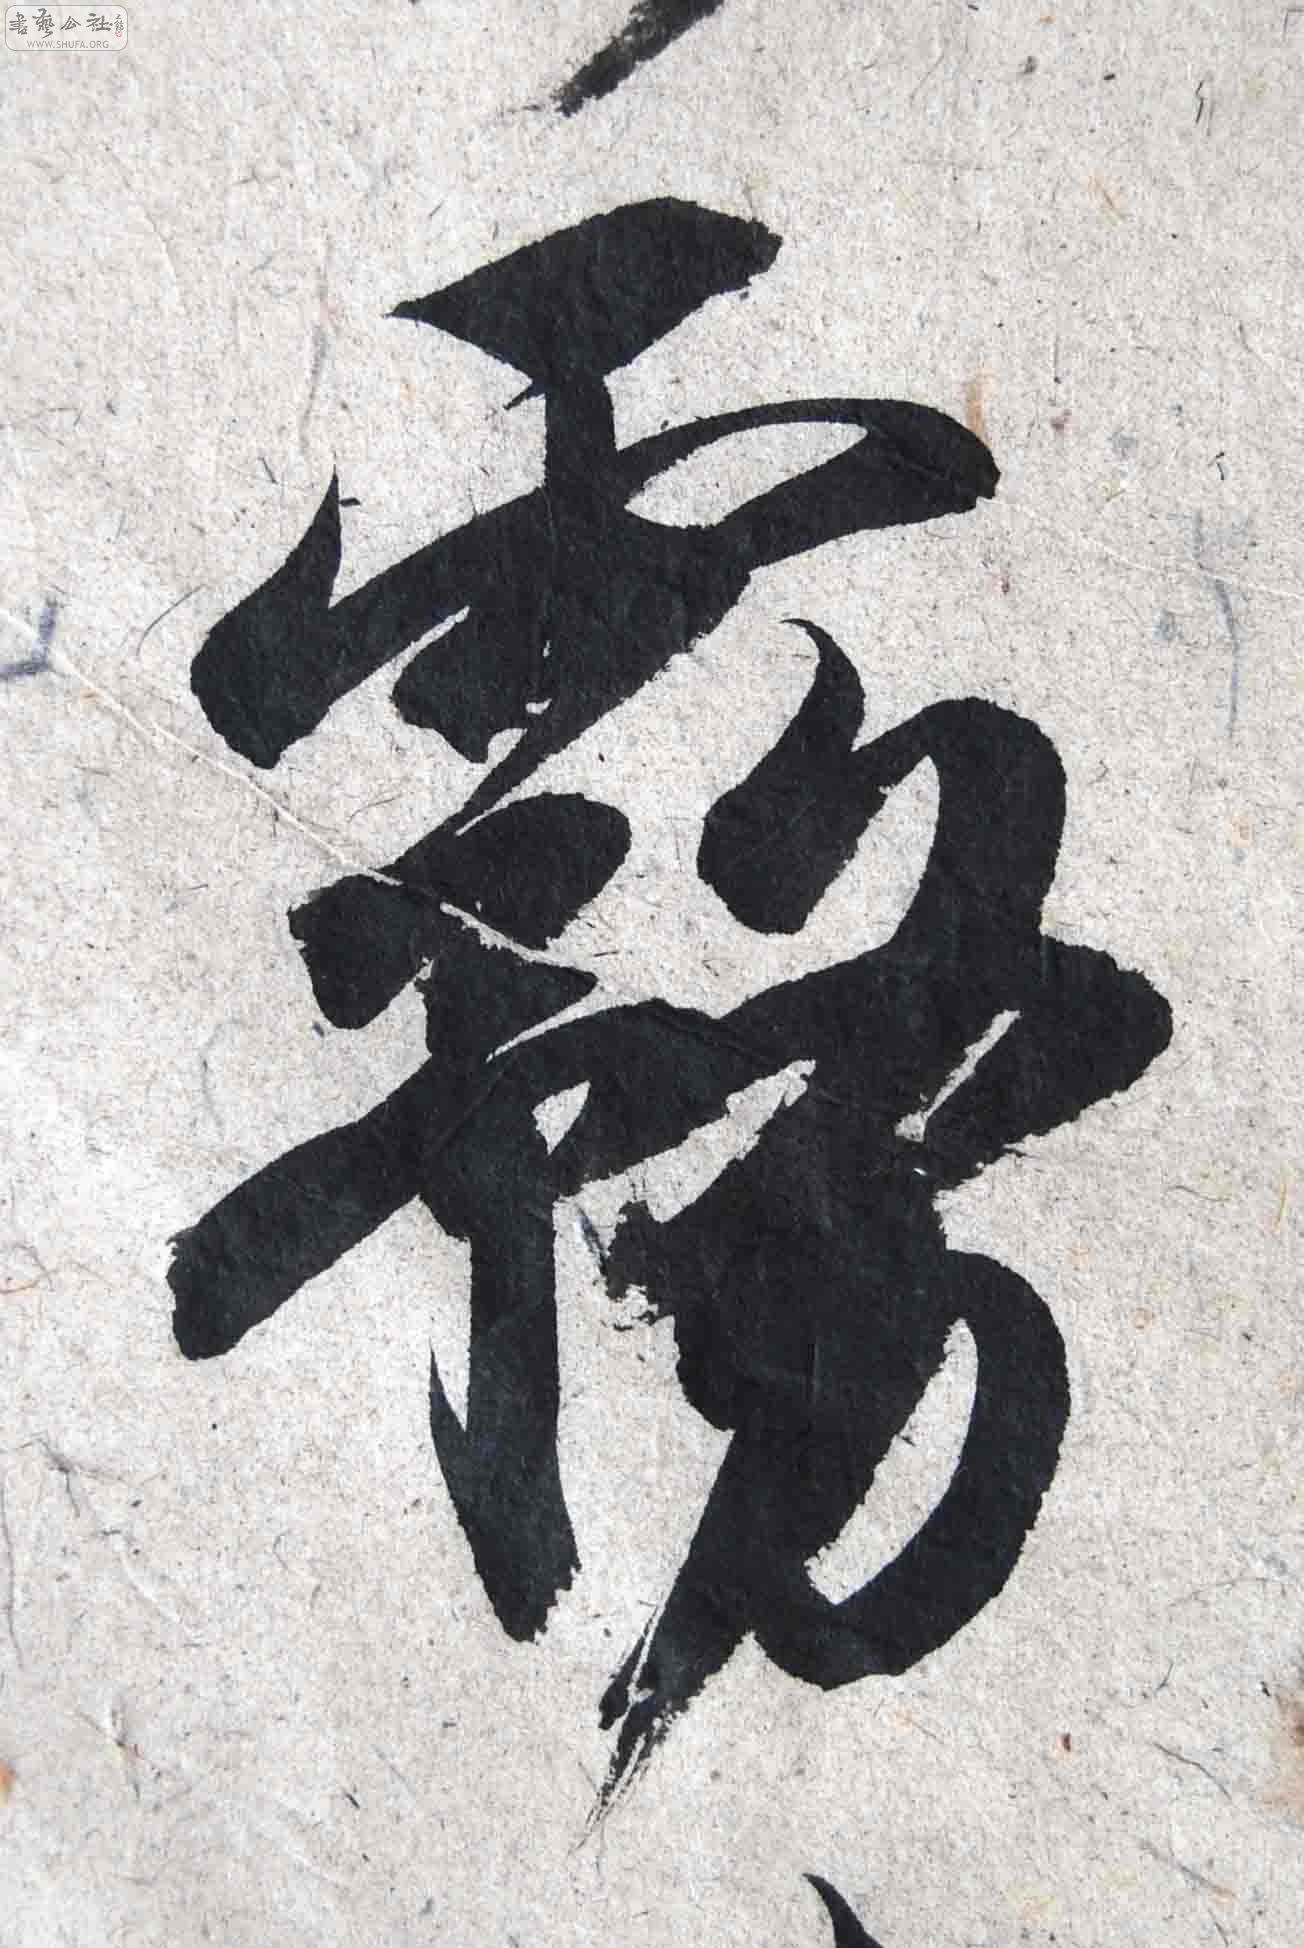 書藝公社
WWW.SHUFA.ORG
霧